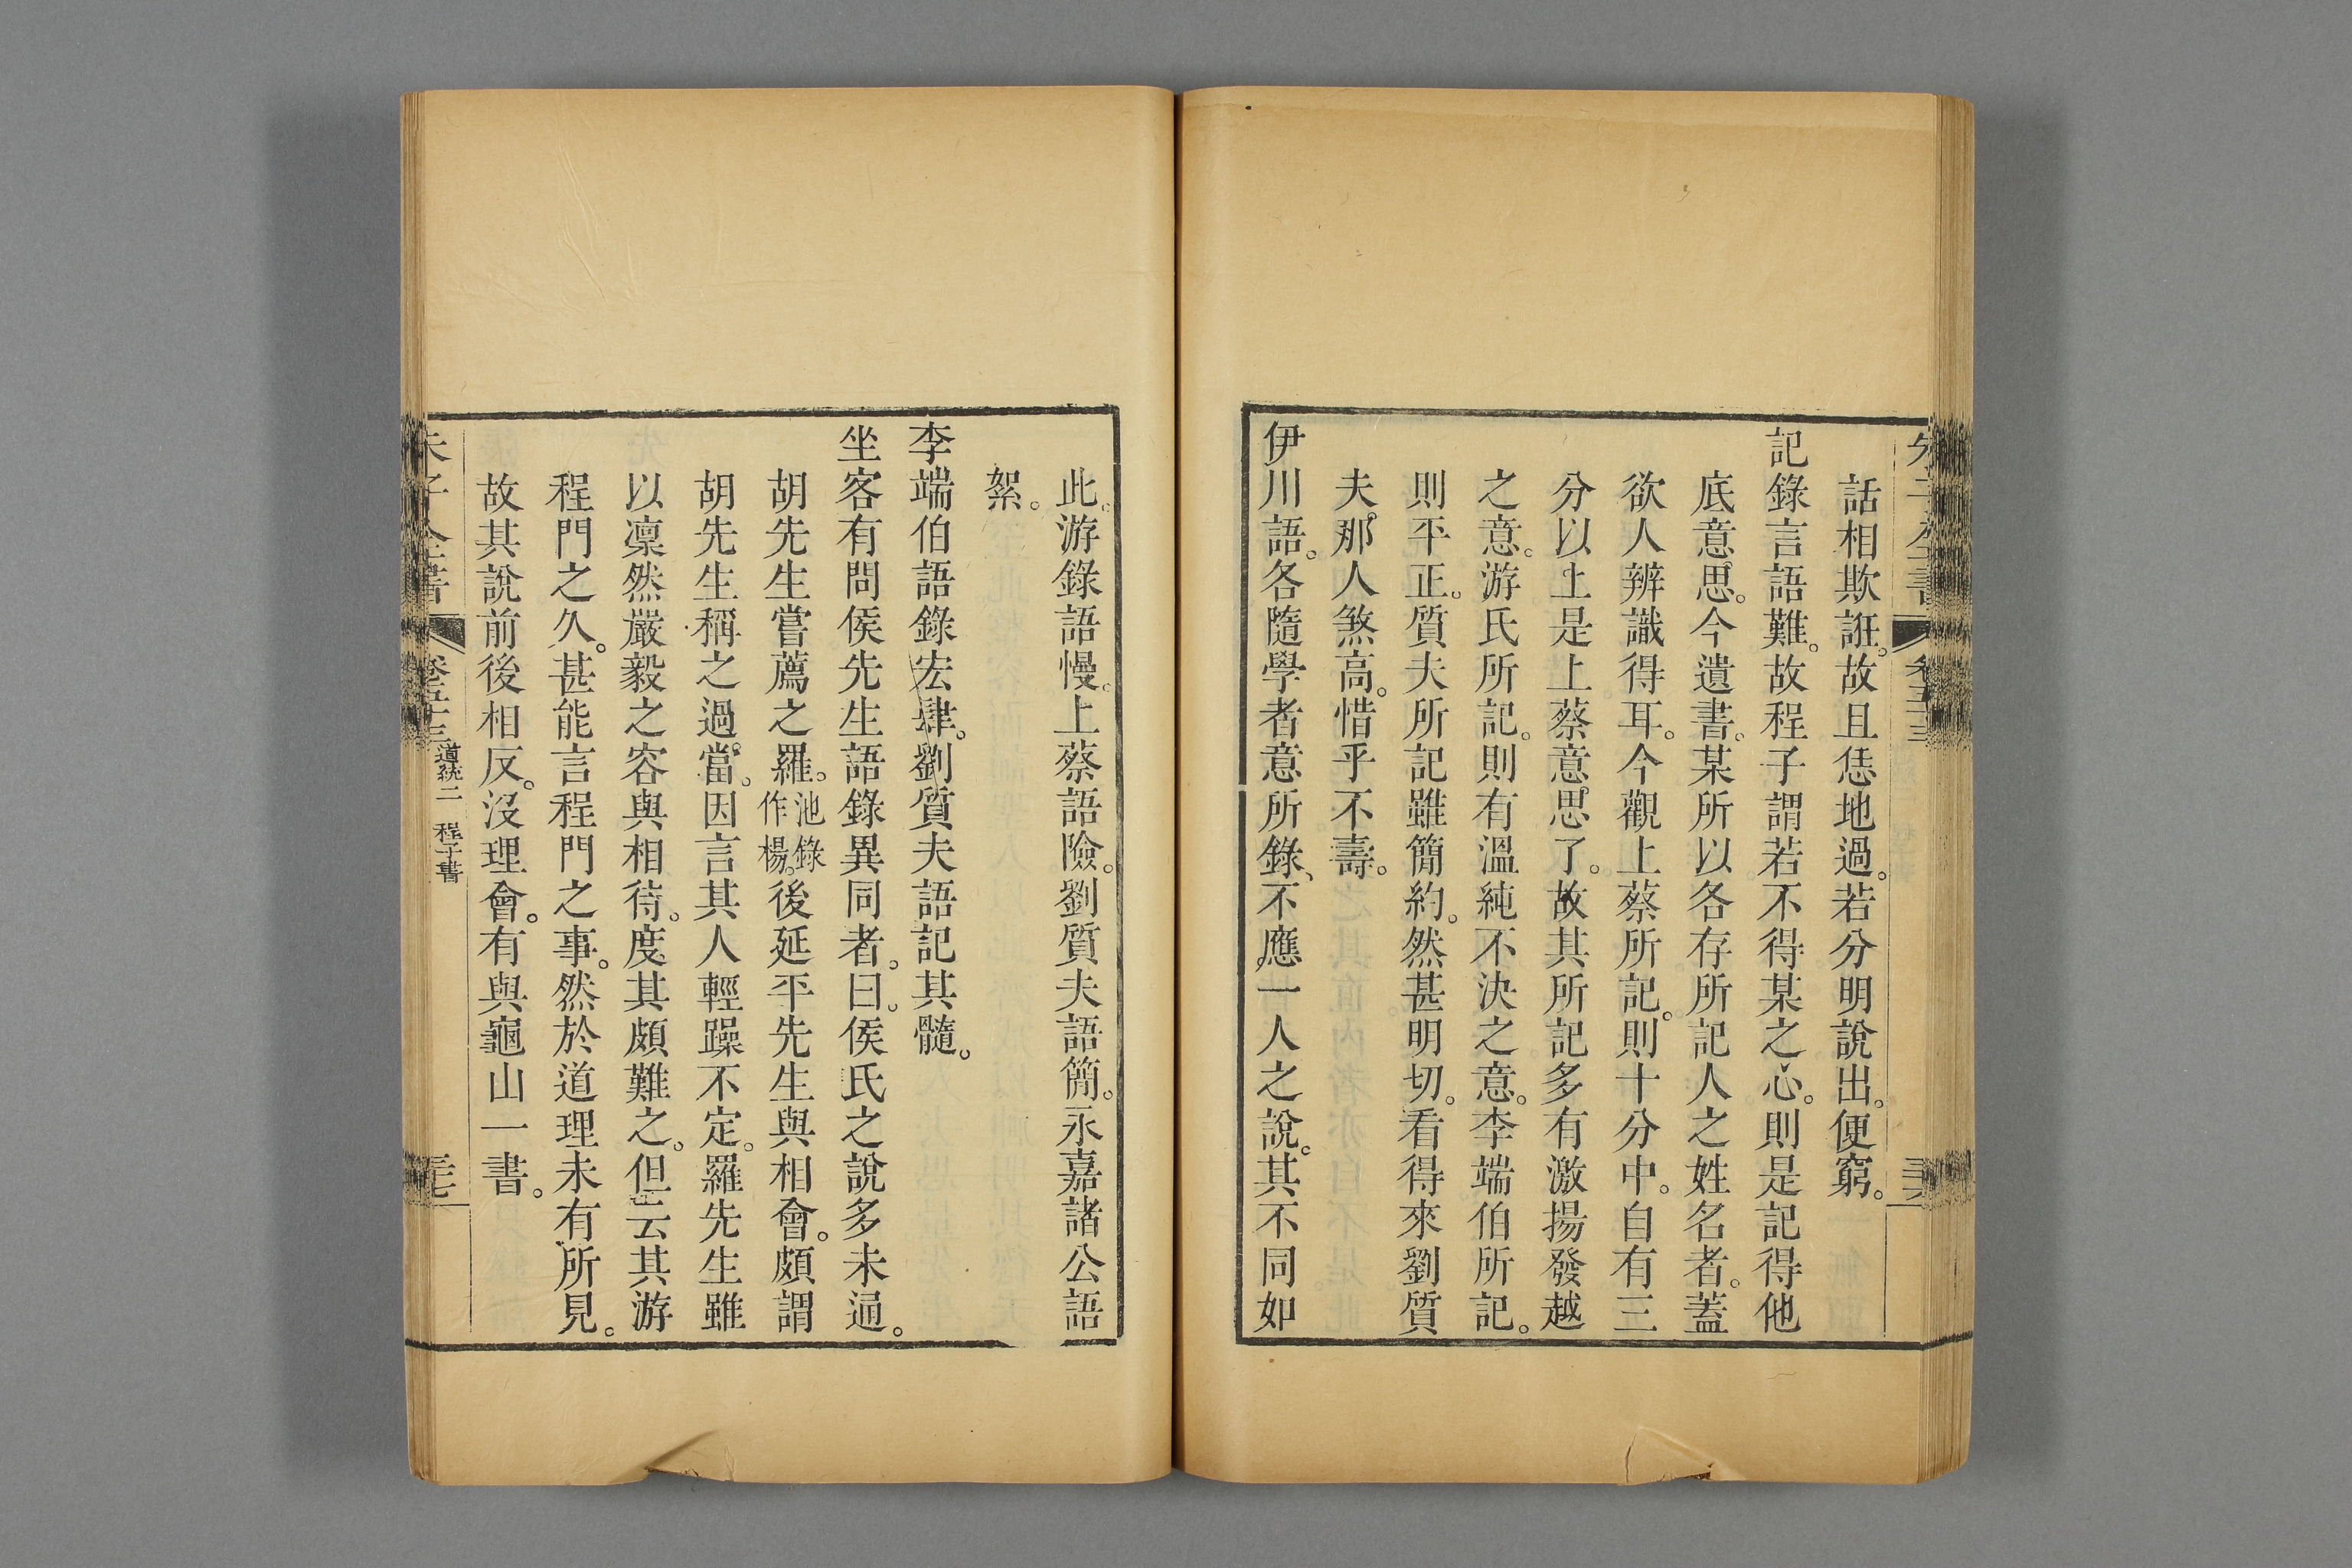 話相欺誑。故且恁地過。若分明說出。便窮。
記錄言語難。故程子謂若不得某之心。則是記得他
底意思。今遺書。某所以各存所記人之姓名者。蓋
欲人辨識得耳。今觀上蔡所記。則十分中。自有三
分以上是上蔡意思了。故其所記多有激揚發越
之意。游氏所記。則有溫純不決之意。李端伯所記。
則平正。質夫所記雖簡約。然甚明切。看得來劉質
夫。那人煞高。惜乎不壽。
伊川語。各隨學者意所錄、不應一人之說。其不同如
此。游錄語慢。上蔡語險。劉質夫語簡。永嘉諸公語
絮。
李端伯語錄宏肆。劉質夫語記其髓。
坐客有問侯先生語錄異同者。曰。侯氏之說多未通。
胡先生嘗薦之羅。池錄作楊。後延平先生與相會。頗謂
胡先生稱之過當。因言其人輕躁不定。羅先生雖
以凜然嚴毅之容與相待。度其頗難之。但云其游
程門之久。甚能言程門之事。然於道理未有所見。
故其說前後相反。沒理會。有與龜山一書。
朱子全書 卷五十三 道統二 程子書